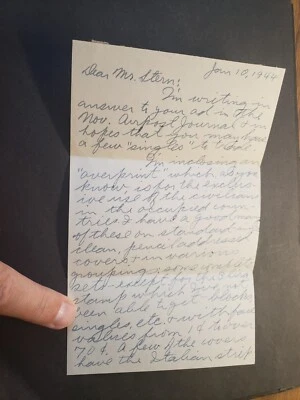 Jan 10, 1944
Dear Mr. Stern:
I'm writing in
answer to your ad in the
Nov. Airpost Journal & in
hopes that you may have
a few "singles" to trade.
I'm inclosing an
"overprint" which as you
know, is for the exclus-
ive use of the civilians
in the occupied coun-
tries. I have a good many
of these on standard,
clean, pencil addressed
covers & in various
groupings,
sets except for
stamp which I've not
been able to get blocks
singles, etc. & with face
values from 1¢ to over
70¢. A few of the covers
have the Italian